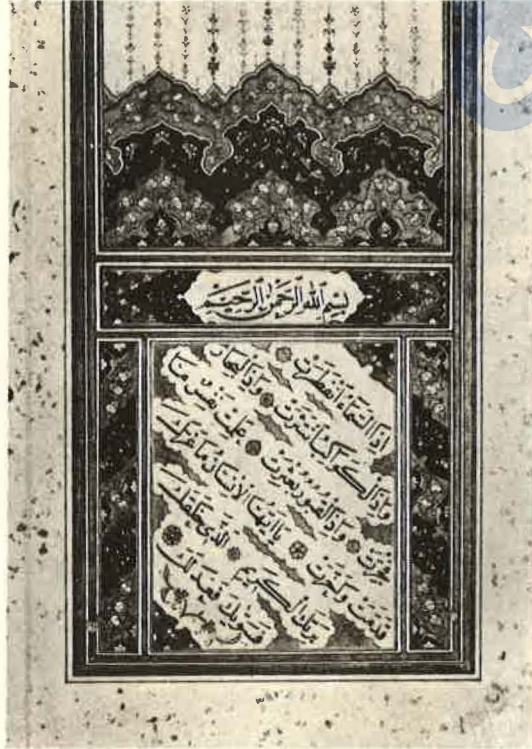 بسم الله الرحمن الرحيم
اذا السماء انفطرت
واذا الكواكب انتثرت واذا البحار
فجرت واذا القبور بعثرت علمت نفس ما
قدمت واخرت يا ايها الانسان ما غرك
بربك الكريم الذي خلقك
فسويك فعدلك